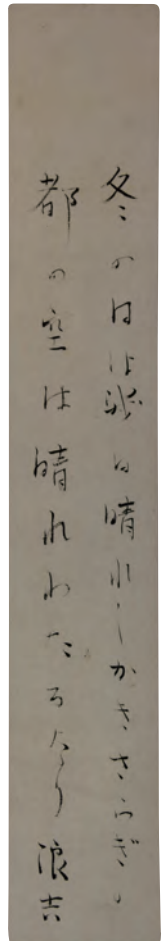 冬の日は幾日晴れしかきさらぎの
都の空は晴れわたるなり 浪吉